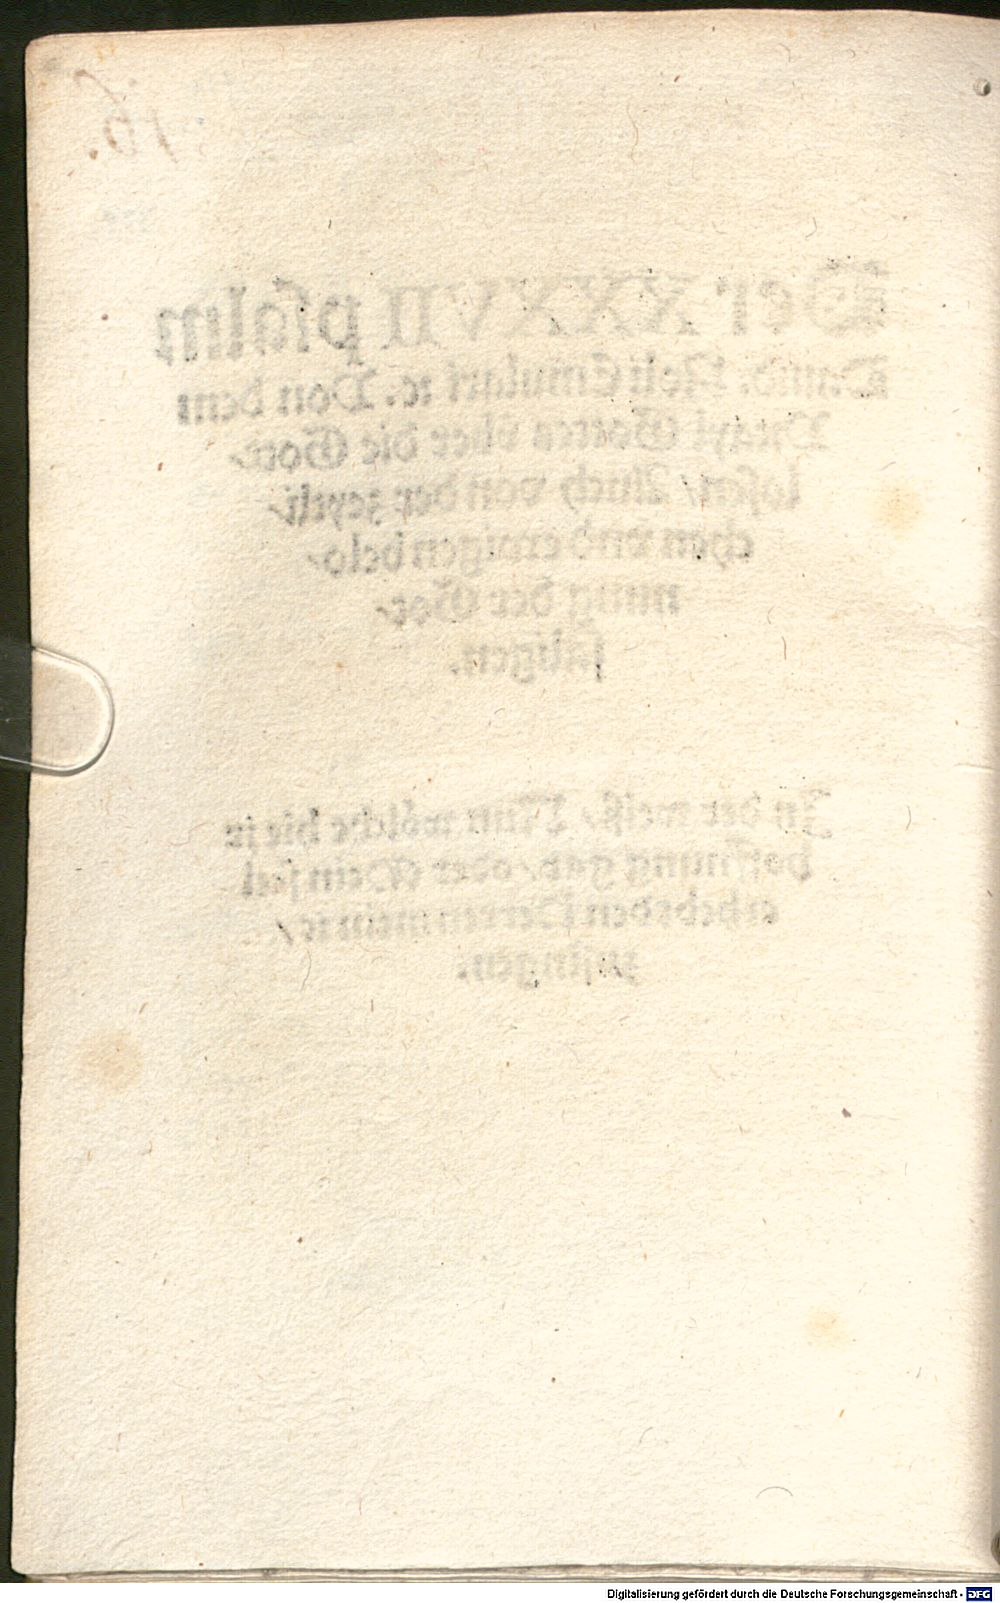 16.
Der XXXVII psalm
Dauid. Noli Emulari ꝛc. Von dem
Gottes über die Gott-
losen/ Auch von der zeytli-
chen vnd ewigen belo-
nung der Got-
säligen.
In der weiß/ Nun wölche hie jr
hoffnung gar/ oder Mein seel
erhebt den Herren mein ꝛc/
zusingen.
Digitalisierung gefördert durch die Deutsche Forschungsgemeinschaft - DFG